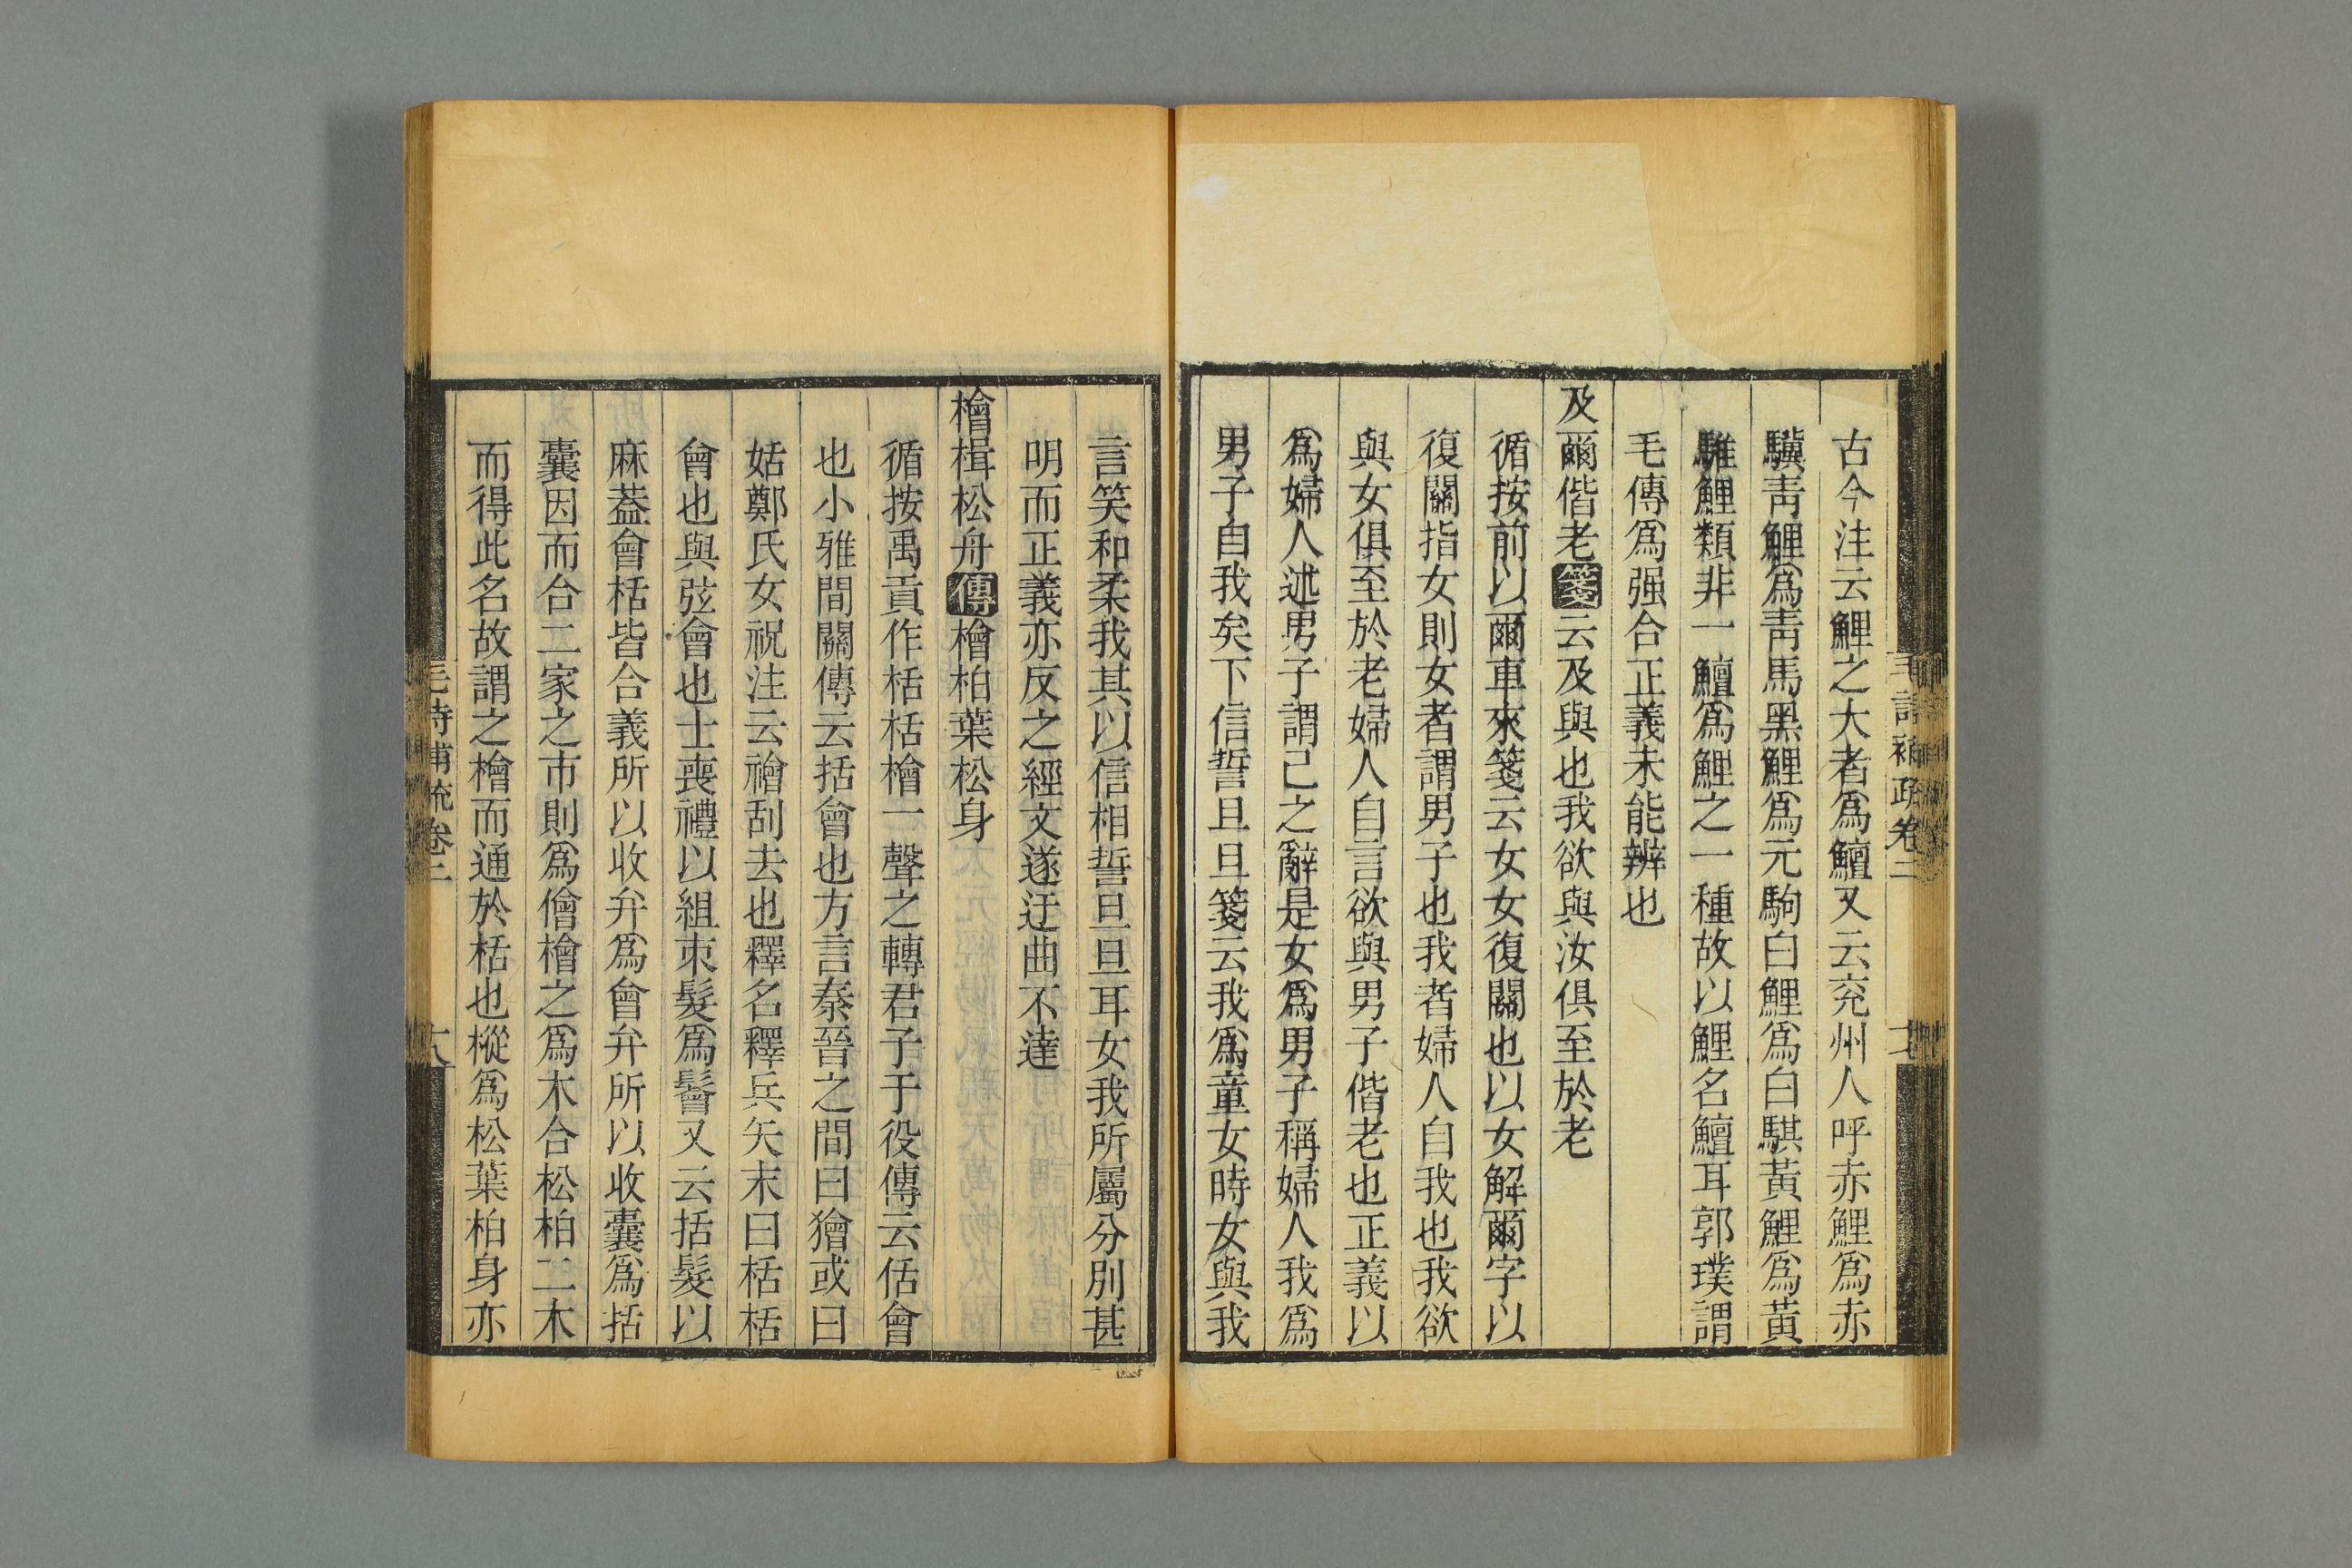 古今注云鯉之大者爲鱣又云兖州人呼赤鯉爲赤
驥靑鯉爲靑馬黑鯉爲元駒白鯉爲白騏黃鯉爲黃
騅鯉類非一鱣爲鯉之一種故以鯉名鱣耳郭璞謂
毛傳爲强合正義未能辨也
及爾偕老箋云及與也我欲與汝俱至於老
循按前以爾車來箋云女女復關也以女解爾字以
復關指女則女者謂男子也我者婦人自我也我欲
與女俱至於老婦人自言欲與男子偕老也正義以
爲婦人述男子謂己之辭是女爲男子稱婦人我爲
男子自我矣下信誓旦旦箋云我爲童女時女與我
言笑和柔我其以信相誓旦旦耳女我所屬分別甚
明而正義亦反之經文遂迂曲不達
檜楫松舟傳檜柏葉松身
循按禹貢作栝栝檜一聲之轉君子于役傳云佸會
也小雅間關傳云括會也方言秦晉之間曰獪或曰
姡鄭氏女祝注云禬刮去也釋名釋兵矢末曰栝栝
會也與弦會也士喪禮以組束髮爲鬠又云括髮以
麻葢會栝皆合義所以收弁爲會弁所以收囊爲括
囊因而合二家之市則爲儈檜之爲木合松柏二木
而得此名故謂之檜而通於栝也樅爲松葉柏身亦
毛詩補疏卷二